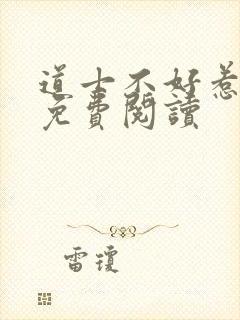 道士不好惹
免費閱讀
雷瓊